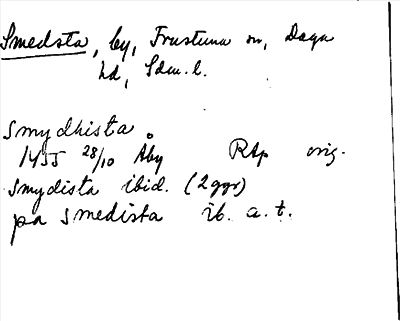 Smedsta, by, Frustuna sn, Daga
hd, Sdm. l.
smydhista.
1455 28/10 Åby RAp orig.
smydista ibid. (2ggr)
pa smedista ib. a.t.